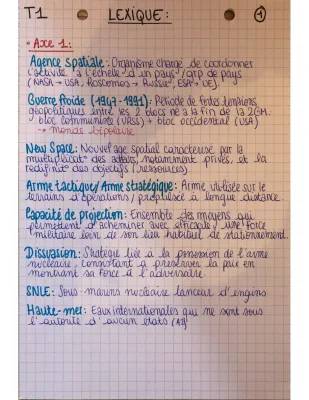 T1 LEXIQUE: 1
• Axe 1:
Agence spatiale: Organisme chargé de coordonner
l'activité à l'échelle d'un pays / grp de pays
(NASA → USA, Roscomos → Russie, ESA → UE).
Guerre froide (1947-1991): Période de fortes tensions
géopolitiques entre les 2 blocs né à la fin de la 2GM.
bloc communiste (URSS) + bloc occidental (USA)
→ monde bipolaire
New Space: Nouvel age spatial caractérisé par la
multiplicat° des acteurs, notamment privés, et la
redéfinit° des objectifs / ressources)
Arme tactique / Arme stratégique: Arme utilisée sur le
terrains d'opérations / propulsée à longue distance.
Capacité de projection: Ensemble des moyens qui
permettent d'acheminer avec efficacité une force
militaire loin de son lieu habituel de stationnement.
Dissuasion: Stratégie liée à la possession de l'arme
nucléaire, consistant à préserver la paix en
montrant sa force à l'adversaire.
SNLE: Sous-marins nucléaire lanceur d'engins
Haute-mer: Eaux internationales qui ne sont sous
l'autorité d'aucun états